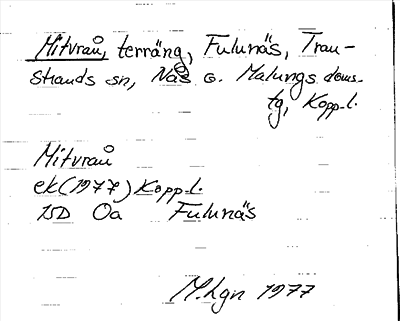 Mitvrån, terräng, Fulunäs, Tran-
strands sn, Nås o. Malungs doms-
tg, Kopp.l.
Mitvrån
ek (1977) Kopp.l.
15D 0a Fulunäs
M.Lgn 1977